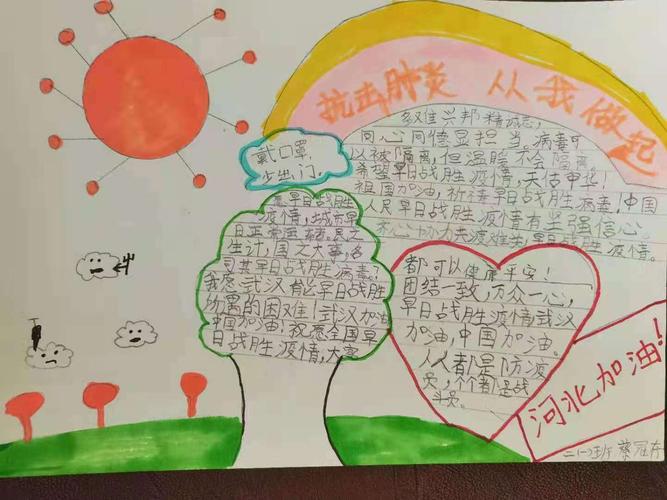 抗击肺炎 从我做起
多难兴邦精诚志,
同心同德显担当。病毒可
以被隔离,但温暖不会隔离
希望早日战胜疫情,天佑中华!
祖国加油,祈祷早日战胜病毒,中国
人民早日战胜疫情有坚强信心。
齐心协力共渡难关,早日战胜疫情。
戴口罩,
少出门。
愿早日战胜
疫情,城市早
日正常运转,民之
生计,国之大事,各
司其早日战胜病毒。
我愿武汉能早日战胜
的困难!武汉加油
中国加油,祝愿全国早
日战胜疫情,大家
都可以健康平安!
团结一致,万众一心,
早日战胜疫情武汉
加油,中国加油。
人人都是防疫
员,个个都是战
斗员。
河北加油!
二(一)班 蔡冠东